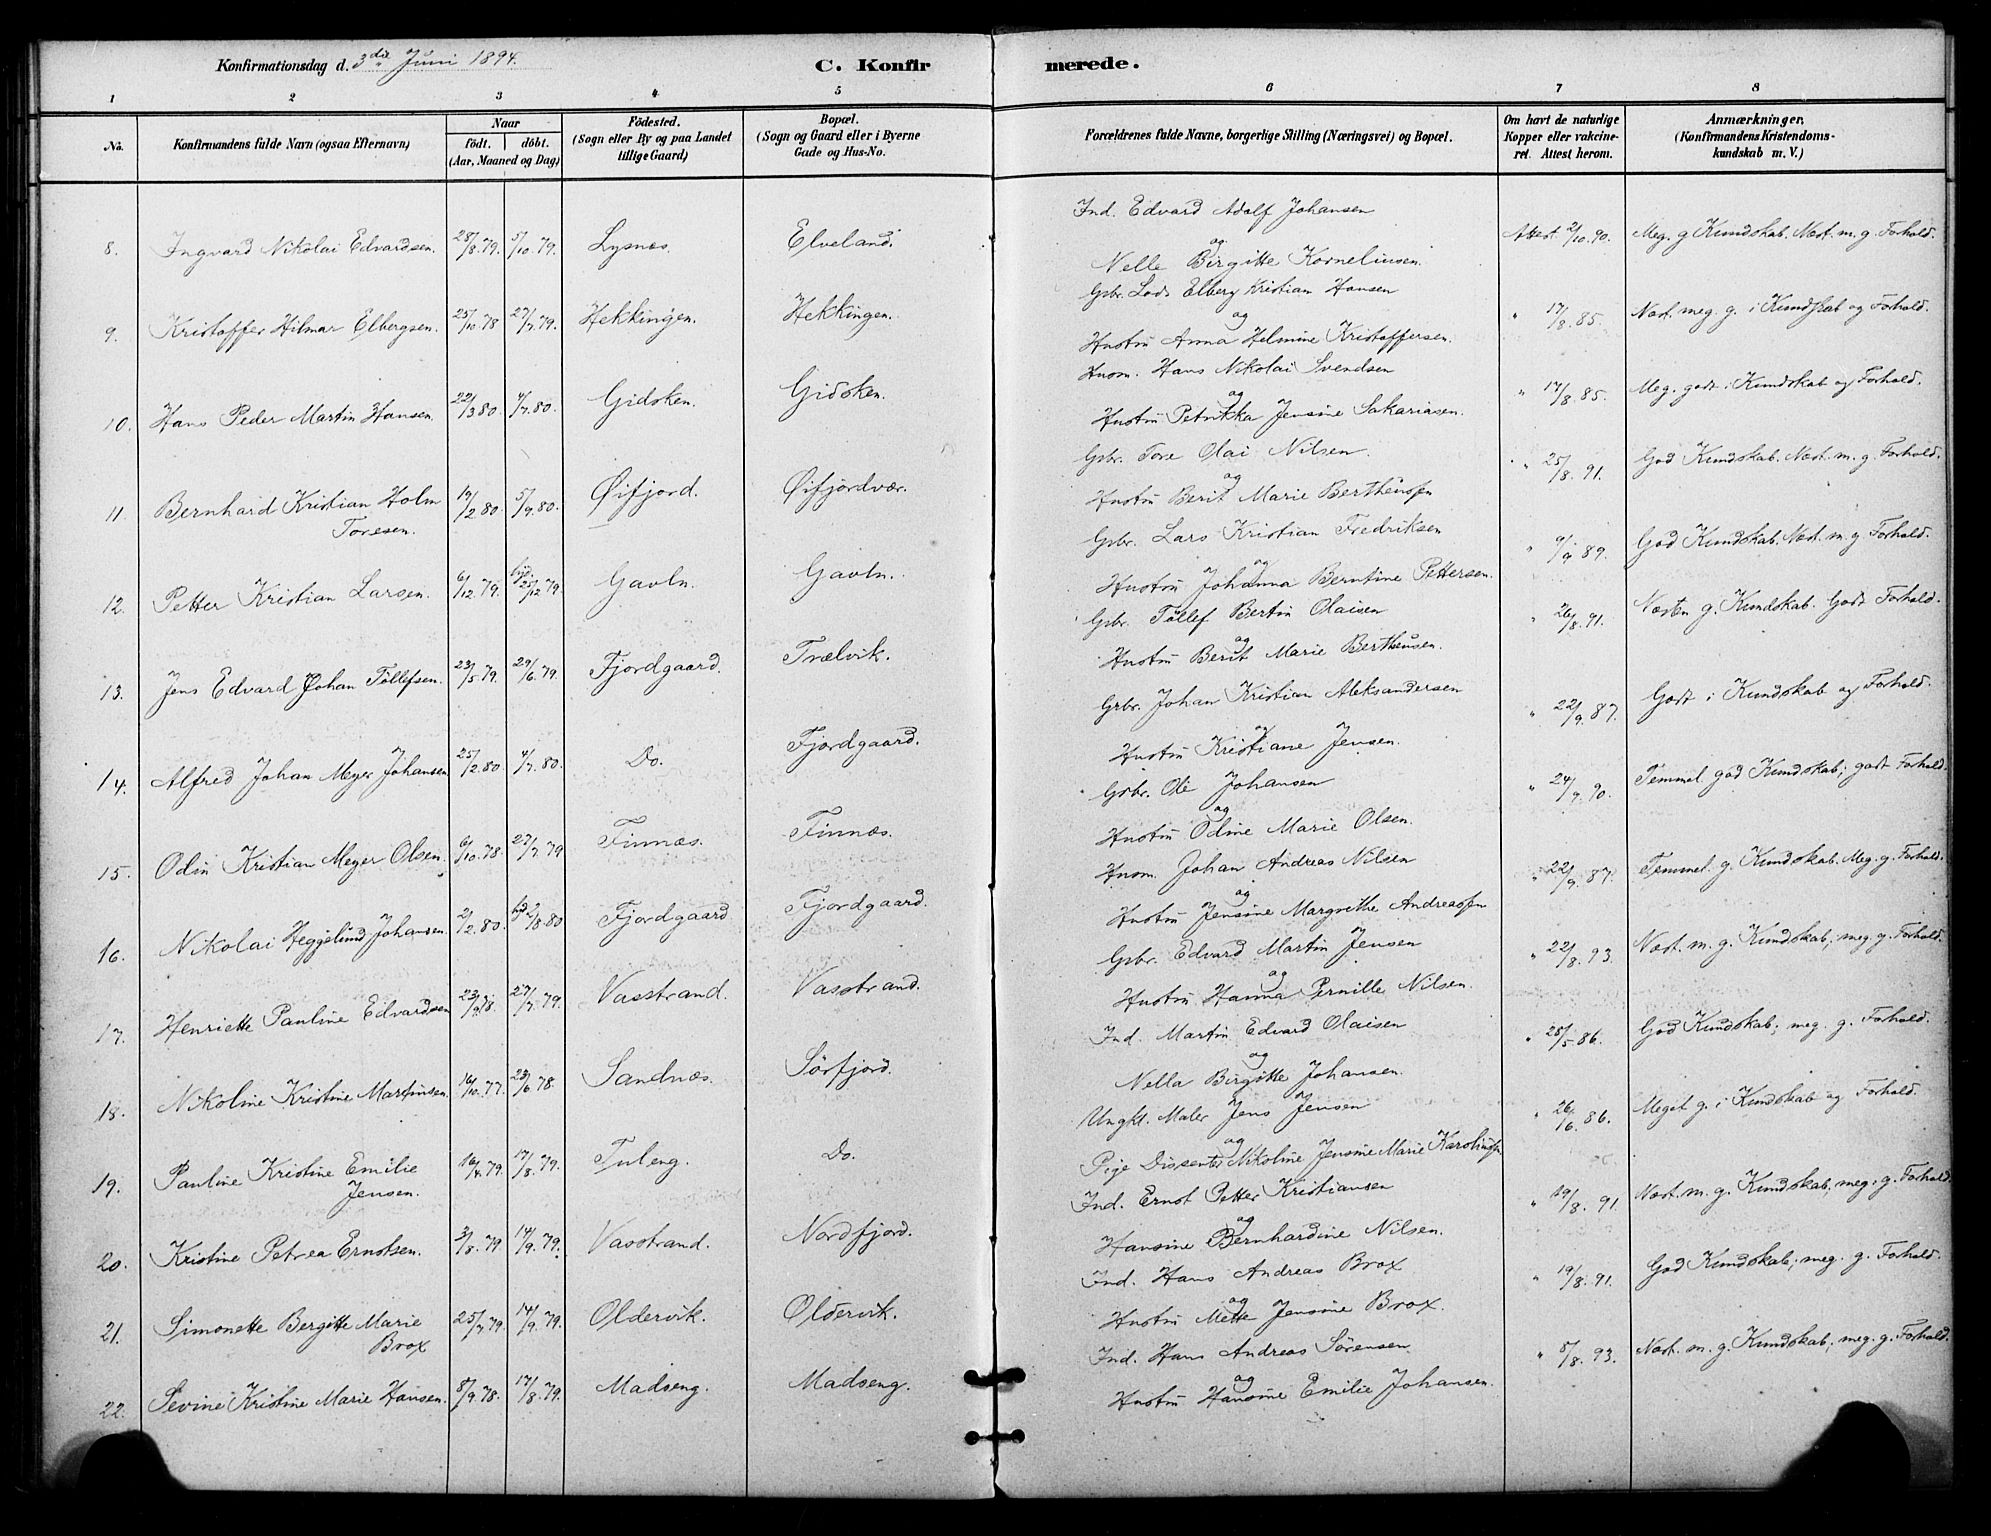 Konfirmationsdag d. 3die Juni 1894.
C. Konfir
merede.
1 2 3 4 5 6 7 8
No.
Konfirmandens fulde Navn (ogsaa Efternavn)
Naar
født. døbt.
(Aar, Maaned og Dag)
Fødested.
(Sogn eller By og paa Landet
tillige Gaard)
Bopæl.
(Sogn og Gaard eller i Byerne
Gade og Hus-No.
Forældrenes fulde Navne, borgerlige Stilling (Næringsvei) og Bopæl.
Om havt de naturlige
Kopper eller vakcine-
ret. Attest herom.
Anmærkninger.
(Konfirmandens Kristendoms-
kundskab m. V.)
8. Ingvard Nikolai Edvardsen. 28/8.79. 5/10.79. Lysnæs. Elveland. Ind. Edvard Adolf Johansen
og
Nelle Birgitte Korneliusen. Attest 2/10.90. Meg. g Kundskab. Næst. m. g. Forhold.
9. Kristoffer Hilmar Elbergsen. 25/10.78 27/7.79. Hekkingen. Hekkingen. Gbr. Lods Elberg Kristian Hansen
og
Hustru Anna Helmine Kristoffersen. " 17/8.85. Næst. meg. g. i Kundskab og Forhold.
10. Hans Peder Martin Hansen. 22/3 80. 4/7.80. Gidsken. Gidsken. Husm. Hans Nikolai Svendsen
og
Hustru Petrikka Jensine Sakariasen. " 17/8.85. Meg. godt i Kundskab og Forhold.
11. Bernhard Kristian Holm
Toresen. 19/2 80. 5/9.80. Øifjord. Øifjordvær. Gbr. Tore Olai Nilsen.
og
Hustru Berit Marie Bertheussen " 25/8.91. God Kundskab. Næst. m. g. Forhold.
12. Petter Kristian Larsen. 6/12.79. hjd. 25/12 79. Gavln. Gavln. Gbr. Lars Kristian Fredriksen
og
Hustru Johanna Berntine Pettersen. " 9/9 89. God Kundskab. Næst. m. g. Forhold.
13. Jens Edvard Johan Tøllefsen. 23/5.79. 29/6.79. Fjordgaard. Trælvik. Gbr. Tøllef Bertin Olaisen
og
Hustru Berit Marie Bertheusen. " 26/8.91. Næsten g. Kundskab. Godt Forhold.
14. Alfred Johan Meyer Johansen 25/2.80. 4/7.80. Do. Fjordgaard. Grbr. Johan Kristian Aleksandersen
og
Hustru Kristiane Jensen. " 22/9.87. Godt i Kundskab og Forhold.
15. Odin Kristian Meyer Olsen. 6/10.78. 27/7.79 Finnæs. Finnæs. Grbr. Ole Johansen
og
Hustru Odine Marie Olsen. " 24/9.90. Temmel. god Kundskab; godt Forhold.
16. Nikolai Heggelund Johansen. 2/2.80. hjd 2/8.80 Fjordgaard Fjordgaard. Husm. Johan Andreas Nilsen
og
Hustru Jensine Margrethe Andreassen " 22/9.87. Temmel. g. Kundskab. Meg. g. Forhold.
17. Henriette Pauline Edvardsen 27/7.79. Vasstrand. Vasstrand. Gbr. Edvard Martin Jensen
og
Hustru Hanna Pernille Nilsen. " 22/8.93. Næst. m. g. Kundskab; meg. g. Forhold.
18. Nikoline Kristine Martinsen. 16/10.77. 23/6.78. Sandnæs. Sørfjord. Ind. Martin Edvard Olaisen
og
Nella Birgitte Johansen. " 28/5 86. God Kundskab; meg. g. Forhold.
19. Pauline Kristine Emilie
Jensen. 16/4.79. 17/8.79. Tuleng. Do. Ungkl. Maler Jens Jensen
og
Pige Dissenter Nikoline Jensine Marie Karoliussen " 26/6.86. Meget g. i Kundskab og Forhold.
20. Kristine Petrea Ernstsen. 3/8.79 14/9.79. Vasstrand. Nordfjord. Ind. Ernst Petter Kristiansen
og
Hansine Bernhardine Nilsen. " 19/8.91. Næst. m. g. Kundskab; meg. g. Forhold.
21. Simonette Bergitte Marie
Brox 25/7.79. 14/9.79. Oldervik. Oldervik. Ind. Hans Andreas Brox
og
Hustru Mette Jensine Brox. " 19/8.91. God Kundskab; meg. g. Forhold.
22. Sevine Kristine Marie Hansen. 8/9.78. 17/8.79. Madseng. Madseng. Ind. Hans Andreas Sørensen.
og
Hustru Hansine Emilie Johansen. " 8/8.93. Næst. m. g. Kundskab; meg. g. Forhold.